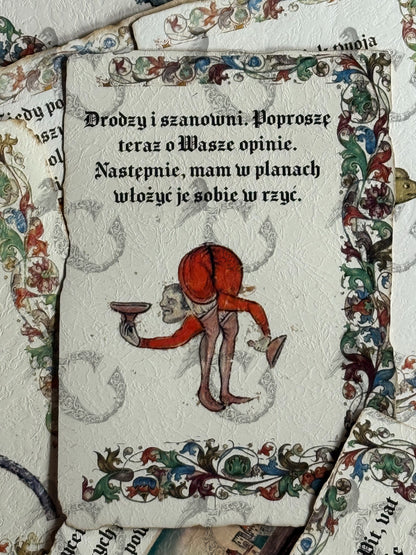 Drodzy i szanowni. Poproszę
teraz o Wasze opinie.
Następnie, mam w planach
włożyć je sobie w rzyć.